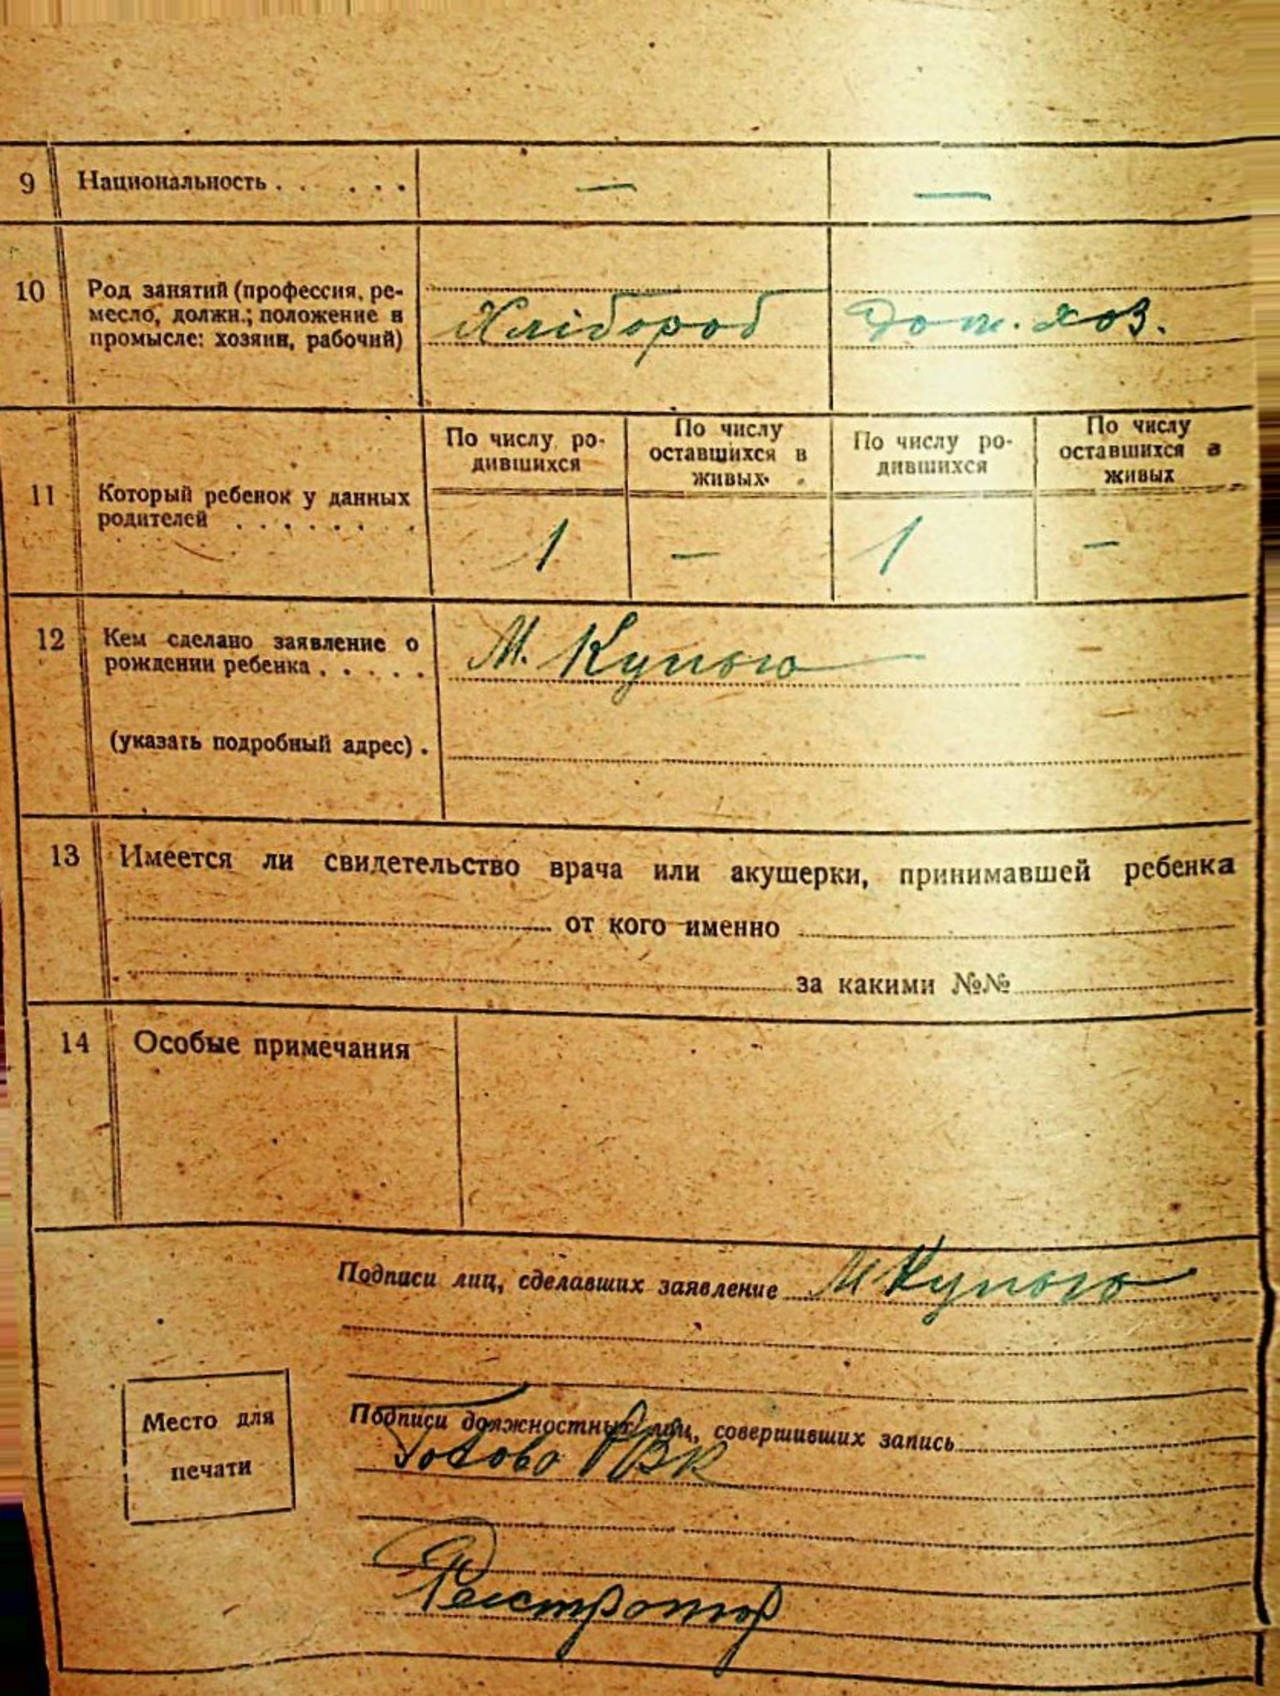 9 Национальность . . . . . . — —
10 Род занятий (профессия, ре-
месло, должн.; положение в
промысле: хозяин, рабочий)
Хлібороб Дом. хоз.
11 Который ребенок у данных
родителей . . . . . . .
По числу ро-
дившихся
По числу
оставшихся в
живых
По числу ро-
дившихся
По числу
оставшихся в
живых
1 — 1 —
12 Кем сделано заявление о
рождении ребенка . . . . .
М.
(указать подробный адрес) .
13 Имеется ли свидетельство врача или акушерки, принимавшей ребенка
от кого именно
за какими №№
14 Особые примечания
Подписи лиц, сделавших заявление М
Место для
печати
Подписи должностных лиц, совершивших запись
Голова РВК
Реєстратор